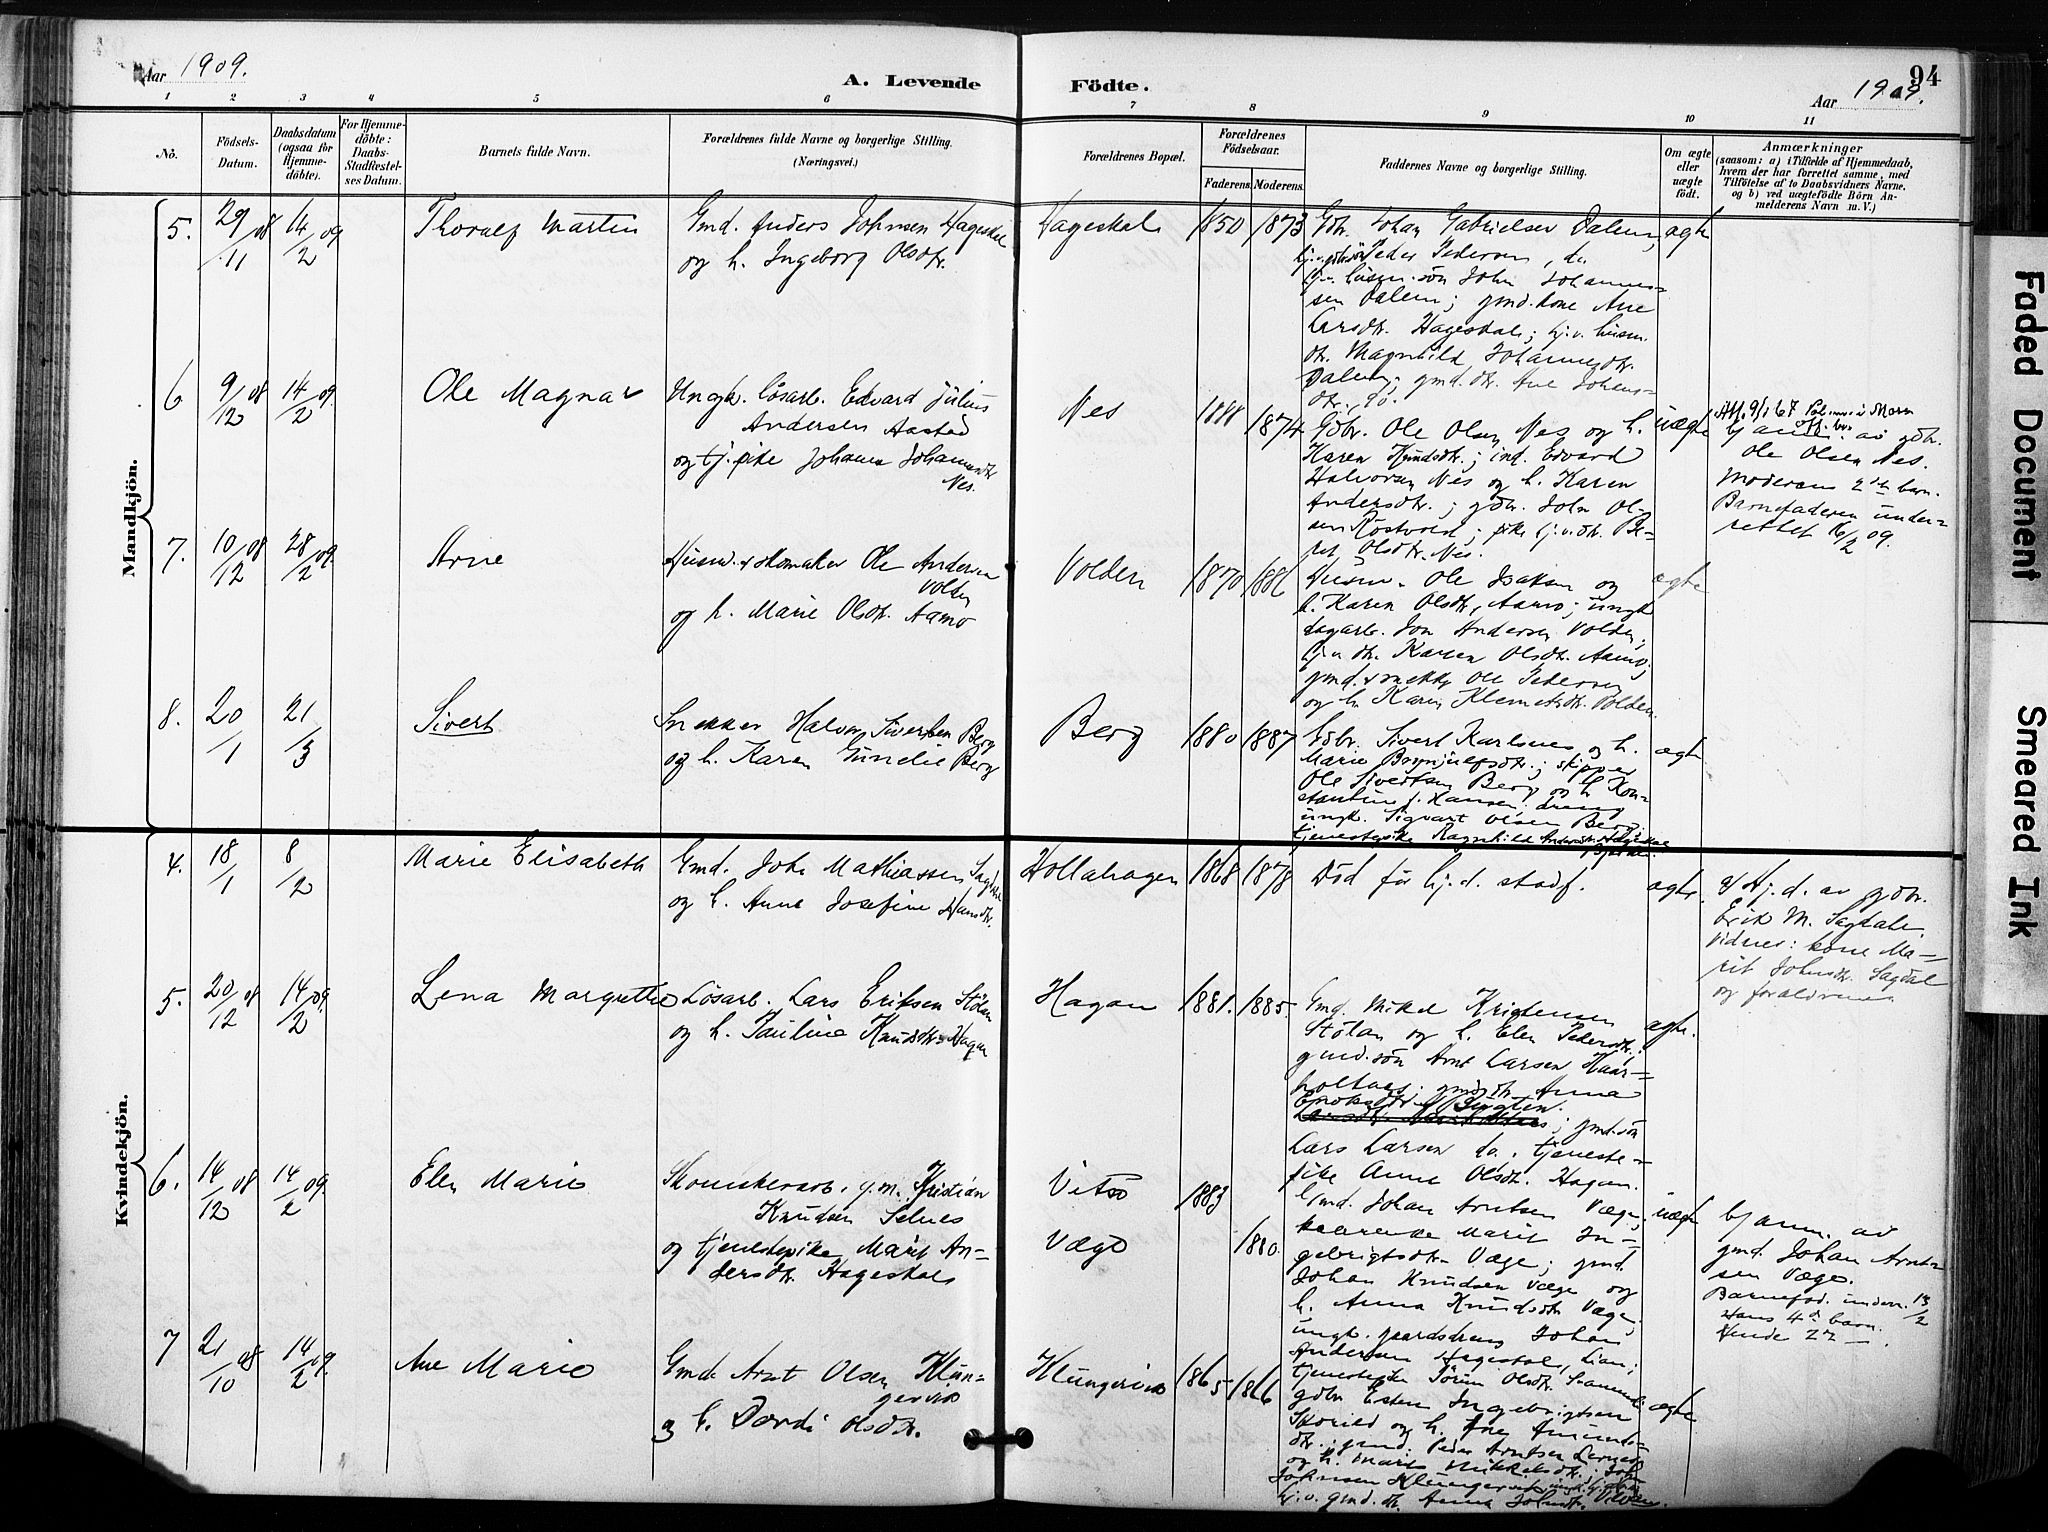 Aar 1909.
A. Levende
Födte.
94
Aar 1909.
1 2 3 4 5 6 7 8 9 10 11
No.
Födsels-
Datum.
Daabsdatum
(ogsaa for
Hjemme-
döbte).
For Hjemme-
döbte:
Daabs-
Stadfæstel-
ses Datum.
Barnets fulde Navn.
Forældrenes fulde Navne og borgerlige Stilling.
(Næringsvei.)
Forældrenes Bopæl.
Forældrenes
Födselsaar.
Faderens. Moderens.
Faddernes Navne og borgerlige Stilling.
Om ægte
eller
uægte
födt.
Anmærkninger
(saasom: a) i Tilfælde af Hjemmedaab,
hvem der har forrettet samme, med
Tilföielse af to Daabsvidners Navne,
og b) ved uægtefödte Börn An-
melderens Navn m. V.)
Mandkjön.
5. 29/11 08 14/2 09
Thoralf Martin
Gmd. Anders Johnsen Hageskal
og h. Ingeborg Olsdtr.
Hageskal
1850 1873
Gbr. Johan Gabrielsen Dalem,
Peder Pedersen, do
sön John Johannes-
sen Dalem; gmd.kone Ane
Larsdtr. Hageskal; hj.v. husm.
dtr. Magnhild Johannesdtr.
Dalem; gmd. dtr. Ane Johns-
dtr., do.
ægte
6 9/12 08 14/2 09.
Ole Magnar
Ungk. lösarb. Edvard Julius
Andersen Aastad
og tj. pike Johanna Johannesdtr
Nes.
Nes
1888 1874
Gbr. Ole Olsen Nes og h.
Karen Knudsdtr.; ind. Edvard
Halvorsen Nes og h. Karen
Andersdtr.; gbr. John Ol-
sen Röstvold; pike hj.v.dtr. Be-
ret Olsdtr. Nes.
uægte
av gbr.
Ole Olsen Nes.
Moderens 2det barn.
Barnefaderen under-
rettet 16/2 09.
7. 10/12 08 28/2 09.
Arne
Husm. skomaker Ole Andersen
Volden
og h. Marie Olsdtr. Aamo
Volden
1870 1886
Husm. Ole Isaksen og
h. Karen Olsdtr. Aamo; ungk
dagarb. Jon Andersen Volden;
hj.v dtr. Karen Olsdtr. Aamo;
gmd. Ole Pedersen
og h Karen Klemetsdtr. Volden.
ægte
8. 20/1 21/3
Sivert
Snekker Halvor Sivertsen Berg
og h. Karen Gunelie Berg
Berg
1880 1887
Gbr. Sivert Karlsnes og h.
Marie Brynjulfsdtr.; skipper
Ole Sivertsen Berg og h Kon-
stantine J. Hansen; dreng
ungk. Sigvart Olsen Berg
tjenestepike Ragnhild
ægte
Kvindekjön.
4. 18/1 8/2
Marie Elisabeth
Gmd. John Mathiassen
og h. Anne Josefine Hansdtr.
Hollahagen
1868 1878
Död för hj.d. stadf.
ægte.
Hj.d. av gbr.
Erik M. Sagdal.
Vidner: kone Ma-
rit Johnsdtr. Sagdal
og forældrene
5. 20/12 08 14/2 09.
Lena Margrethe
Lösarb. Lars Eriksen Stölan
og h. Pauline Knudsdtr. Hagan
Hagan
1881. 1885.
Gmd. Mikal Kristensen
Stölan og h. Elen Pedersdtr.;
gmd.sön Arnt Larsen Haar-
holtnes; gmd.dtr Anna
Eriksdtr.
; gmd.sön
Lars Larsen do.; tjeneste-
pike Anne Olsdtr. Hagan.
ægte.
6. 14/12 08 14/2 09.
Elen Marie
Skomakerarb. g.m. Kristian
Knudsen Selnes
og tjenestepike Marit An-
dersdtr. Hageskal
Vitsö
Vægö
1883
1880.
Gmd. Johan Arntsen Væge,
kaarenke Marit In-
gebrigtsdtr. Væge; gmd.
Johan Knudsen Væge og
h. Anna Knudsdtr Væge,
ungk. gaardsdreng Johan
Andersen Hageskal, Lian;
tjenestepike Jörun Olsdtr. Svanem
uægte
av
gmd. Johan Arnt-
sen Væge.
Barnefad. underr. 13/2
Hans 4de barn.
Hende 2det —
7 21/10 08 14/2 09.
Ane Marie
Gmd. Arnt Olsen Klun-
gervik
og h. Dordi Olsdtr.
Klungervik
1865 1866
gbr Esten Ingebrigtsen
og h. Ane Amunds-
dtr.; gmd. Peder Arntsen
og h. Marit Mikkelsdtr.; John
Johnsen Klungervik
hj.v. gmd. dtr Anna Johnsdtr.
ægte
Faded Document
Smeared Ink